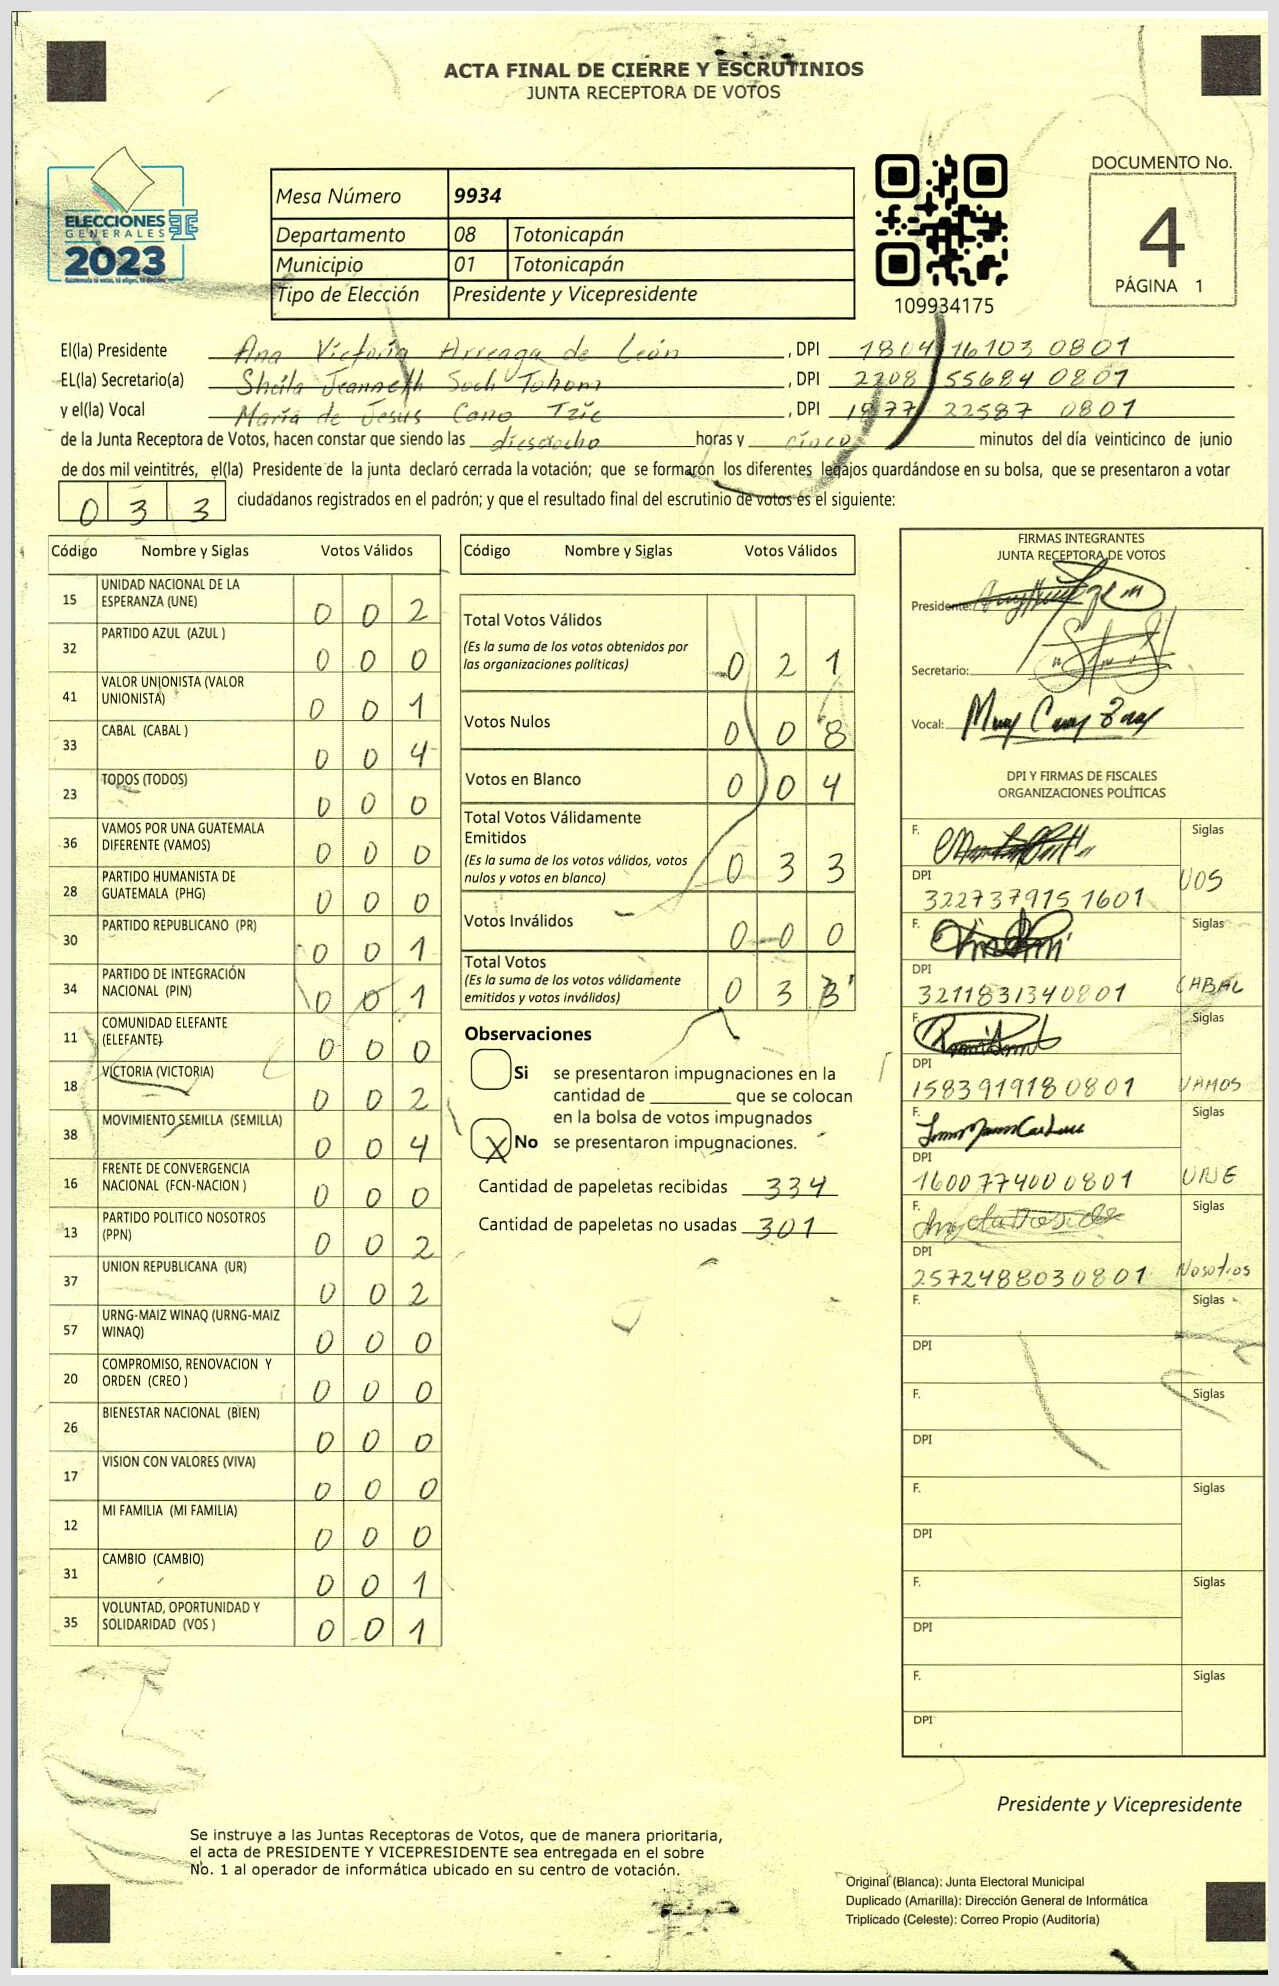 ACTA FINAL DE CIERRE Y ESCRUTINIOS
JUNTA RECEPTORA DE VOTOS
ELECCIONES
GENERALES
2023
Mesa Número 9934
Departamento 08 Totonicapán
Municipio 01 Totonicapán
Tipo de Elección Presidente y Vicepresidente
109934175
DOCUMENTO No.
4
PÁGINA 1
El(la) Presidente Ana Victoria Arreaga de León, DPI 1804 16103 0801
EL(la) Secretario(a) Sheila Jeanneth Soch Tohom, DPI 2208 55684 0801
y el(la) Vocal María de Jesus Cano Tzic, DPI 1877 22587 0801
de la Junta Receptora de Votos, hacen constar que siendo las diesdocho horas y cinco minutos del día veinticinco de junio
de dos mil veintitrés, el(la) Presidente de la junta declaró cerrada la votación; que se formarón los diferentes legajos quardándose en su bolsa, que se presentaron a votar
033 ciudadanos registrados en el padrón; y que el resultado final del escrutinio de votos es el siguiente:
Código Nombre y Siglas Votos Válidos
15 UNIDAD NACIONAL DE LA ESPERANZA (UNE) 0 0 2
32 PARTIDO AZUL (AZUL ) 0 0 0
41 VALOR UNIONISTA (VALOR UNIONISTA) 0 0 1
33 CABAL (CABAL ) 0 0 4
23 TODOS (TODOS) 0 0 0
36 VAMOS POR UNA GUATEMALA DIFERENTE (VAMOS) 0 0 0
28 PARTIDO HUMANISTA DE GUATEMALA (PHG) 0 0 0
30 PARTIDO REPUBLICANO (PR) 0 0 1
34 PARTIDO DE INTEGRACIÓN NACIONAL (PIN) 0 0 1
11 COMUNIDAD ELEFANTE (ELEFANTE) 0 0 0
18 VICTORIA (VICTORIA) 0 0 2
38 MOVIMIENTO SEMILLA (SEMILLA) 0 0 4
16 FRENTE DE CONVERGENCIA NACIONAL (FCN-NACION ) 0 0 0
13 PARTIDO POLITICO NOSOTROS (PPN) 0 0 2
37 UNION REPUBLICANA (UR) 0 0 2
57 URNG-MAIZ WINAQ (URNG-MAIZ WINAQ) 0 0 0
20 COMPROMISO, RENOVACION Y ORDEN (CREO ) 0 0 0
26 BIENESTAR NACIONAL (BIEN) 0 0 0
17 VISION CON VALORES (VIVA) 0 0 0
12 MI FAMILIA (MI FAMILIA) 0 0 0
31 CAMBIO (CAMBIO) 0 0 1
35 VOLUNTAD, OPORTUNIDAD Y SOLIDARIDAD (VOS ) 0 0 1
Código Nombre y Siglas Votos Válidos
Total Votos Válidos
(Es la suma de los votos obtenidos por
las organizaciones políticas) 0 2 1
Votos Nulos 0 0 8
Votos en Blanco 0 0 4
Total Votos Válidamente
Emitidos
(Es la suma de los votos válidos, votos
nulos y votos en blanco) 0 3 3
Votos Inválidos 0 0 0
Total Votos
(Es la suma de los votos válidamente
emitidos y votos inválidos) 0 3 3
Observaciones
Si se presentaron impugnaciones en la
cantidad de ________ que se colocan
en la bolsa de votos impugnados
X No se presentaron impugnaciones.
Cantidad de papeletas recibidas 334
Cantidad de papeletas no usadas 301
FIRMAS INTEGRANTES
JUNTA RECEPTORA DE VOTOS
Presidente:
Secretario:
Vocal:
DPI Y FIRMAS DE FISCALES
ORGANIZACIONES POLÍTICAS
F. Siglas
DPI 322737915 1601 VOS
F. Siglas
DPI 3211831340801 CABAL
F. Siglas
DPI 1583919180801 VAMOS
F. Siglas
DPI 1600774000801 UNE
F. Siglas
DPI 2572488030801 Nosotros
F. Siglas
DPI
F. Siglas
DPI
F. Siglas
DPI
F. Siglas
DPI
F. Siglas
DPI
Presidente y Vicepresidente
Se instruye a las Juntas Receptoras de Votos, que de manera prioritaria,
el acta de PRESIDENTE Y VICEPRESIDENTE sea entregada en el sobre
No. 1 al operador de informática ubicado en su centro de votación.
Original (Blanca): Junta Electoral Municipal
Duplicado (Amarilla): Dirección General de Informática
Triplicado (Celeste): Correo Propio (Auditoría)